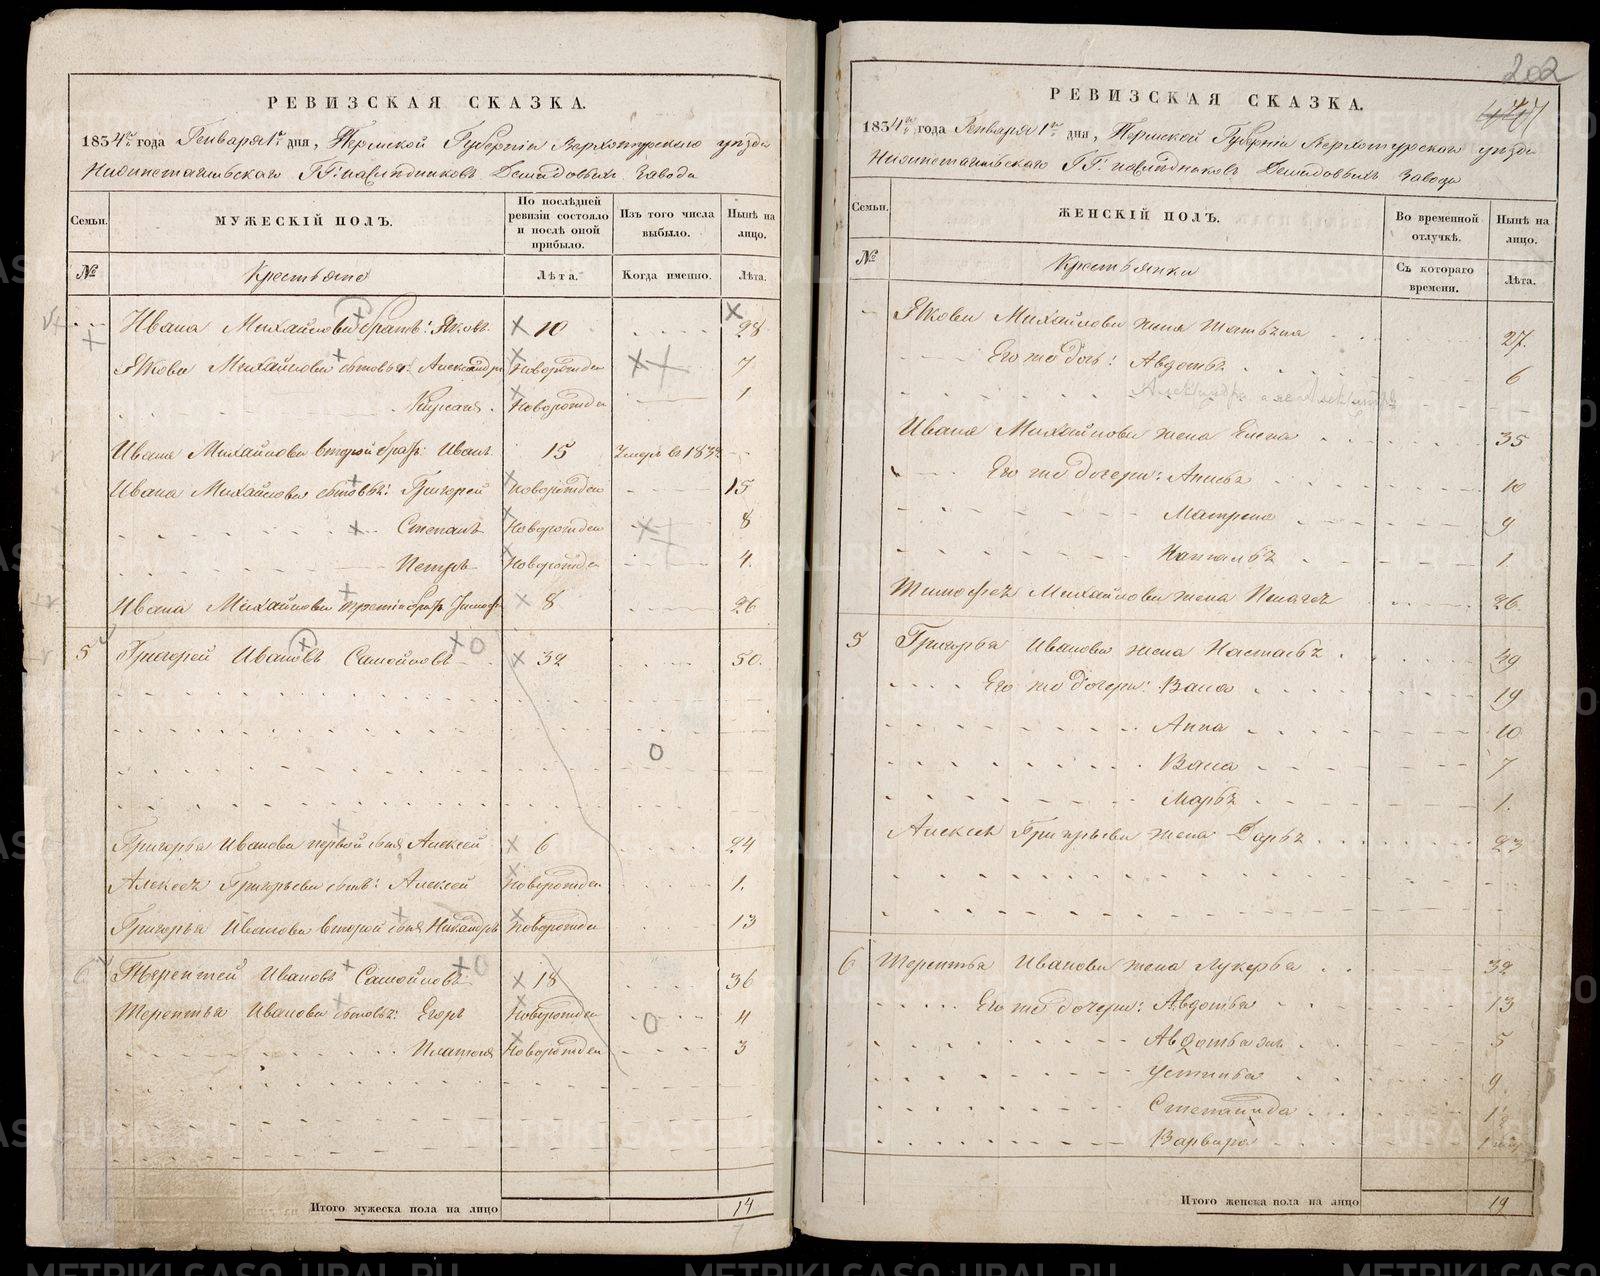 РЕВИЗСКАЯ СКАЗКА.
1834го года Генваря 1го дня, Пермской Губерніи Верхотурскаго уѣзда
Нижнетагильскаго ГГ: наслѣдниковъ Демидовыхъ Завода
Семьи. МУЖЕСКІЙ ПОЛЪ. По послѣдней ревизіи состояло и послѣ оной прибыло. Изъ того числа выбыло. Нынѣ на лицо.
№ Крестьяне Лѣта. Когда именно. Лѣта.
Ивана Михайлова братъ: Яковъ 10 28
Якова Михайлова сыновья: Александръ Новорожден 7
Новорожден 1
Ивана Михайлова второй братъ: Иванъ 15 Умеръ въ
Ивана Михайлова сыновья: Григорей Новорожден 15
Степанъ Новорожден 8
Петръ Новорожден 4.
Ивана Михайлова третій братъ 8 26
5 Григорей Ивановъ Самойловъ 32 50.
0
Григорья Иванова первой сынъ Алексей 6 24
Алексея Григорьева сынъ: Алексей Новорожден 1.
Григорья Иванова второй сынъ Никандръ Новорожден 13
6 Терентей Ивановъ Самойловъ 18 36
Терентья Иванова сыновья: Егоръ Новорожден 11
Платонъ Новорожден 3
Итого мужеска пола на лицо 14
202
РЕВИЗСКАЯ СКАЗКА.
1834го года Генваря 1го дня, Пермской Губерніи Верхотурскаго уѣзда
Нижнетагильскаго ГГ: наслѣдниковъ Демидовыхъ Завода
Семьи. ЖЕНСКІЙ ПОЛЪ. Во временной отлучкѣ. Нынѣ на лицо.
№ Крестьянки Съ котораго времени. Лѣта.
Якова Михайлова жена Татьяна 27.
Его же дочь: Авдотья 6
Ивана Михайлова жена Елена 35
Его же дочери: Анисья 10
Матрена 9
Наталья 1.
Тимофея Михайлова жена Пелагея 26.
5 Григорья Иванова жена Настасья 49
Его же дочери: Васа 19
Анна 10
Васа 7
Марья 1.
Алексея Григорьева жена Дарья 23
6 Терентья Иванова жена Лукерья 32
Его же дочери: Авдотья 13
Авдотья 5
Устинья 9.
Степанида
Варвара
Итого женска пола на лицо 19
METRIKI.GASO-URAL.RU